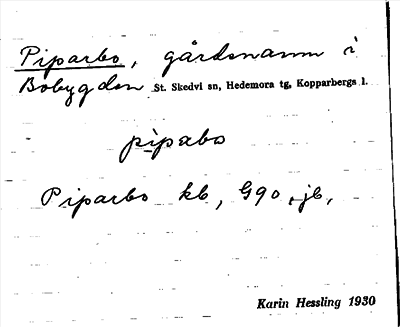 Piparbo, gårdsnamn i
Bobygden St. Skedvi sn, Hedemora tg, Kopparbergs l.
pipabo
Piparbo kb, G90, jb,
Karin Hessling 1930